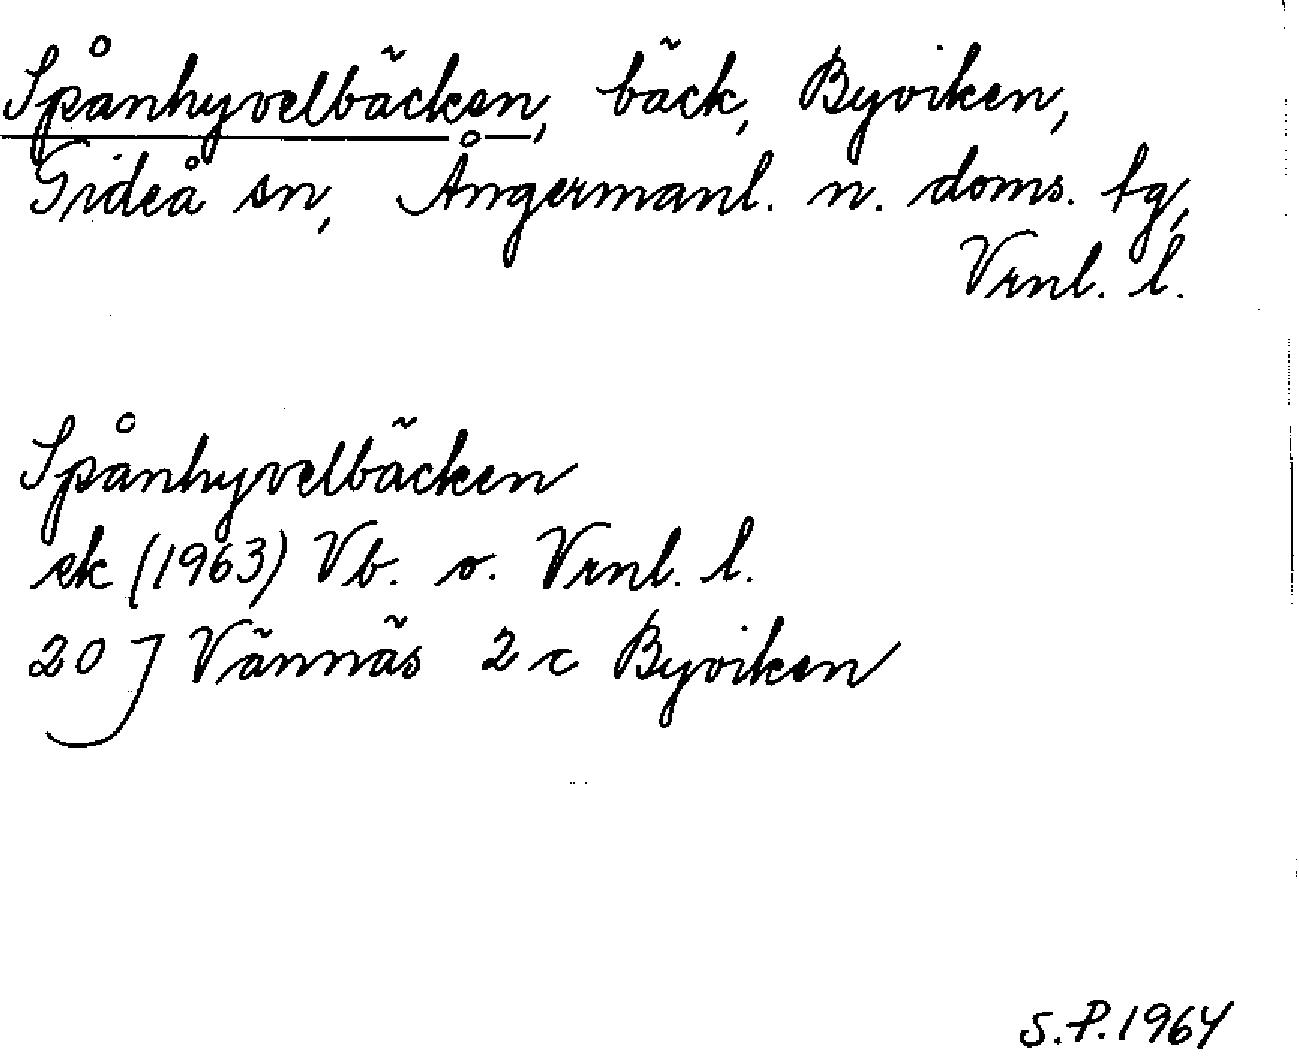 Spånhyvelbäcken, bäck, Byviken,
Gideå sn, Ångermanl. n. doms. tg,
Vrnl. l.
Spånhyvelbäcken
ek (1963) Vb. o. Vrnl. l.
20 J Vännäs 2 c Byviken
S.P. 1964